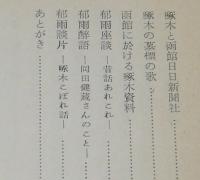 啄木と函館日日新聞社
啄木の墓標の歌
函館に於ける啄木資料
郁雨座談―昔話あれこれ―
郁雨酔語―岡田健蔵さんのこと―
郁雨談片―啄木こぼれ話―
あとがき